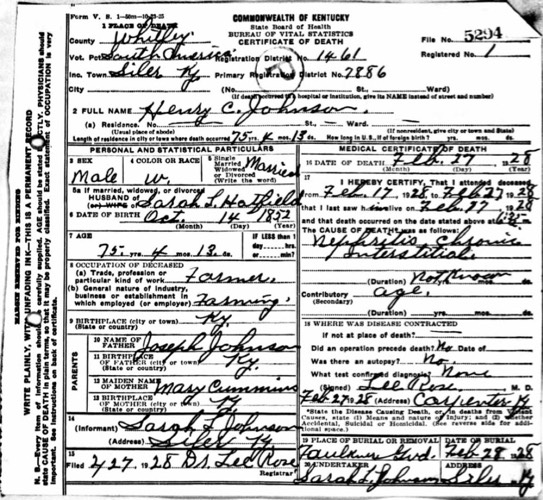 Form V. S. 1-50m-10-23-25
COMMONWEALTH OF KENTUCKY
State Board of Health
BUREAU OF VITAL STATISTICS
CERTIFICATE OF DEATH
File No. 5294
Registered No. 1
1 PLACE OF DEATH
County Whitley
Vot. Pct. South America Registration District No. 1461
Inc. Town Siler Ky Primary Registration District No. 7886
City (No. St. Ward)
(If death occurred in a hospital or institution, give its NAME instead of street and number)
2 FULL NAME Henry C. Johnson
(a) Residence. No. St., Ward.
(Usual place of abode) (If nonresident, give city or town and State)
Length of residence in city or town where death occurred 75 yrs. 4 mos. 13 ds. How long in U. S., if of foreign birth? yrs. mos. ds.
PERSONAL AND STATISTICAL PARTICULARS
3 SEX Male
4 COLOR OR RACE W.
5 Single Married Widowed or Divorced (Write the word) Married
5a If married, widowed, or divorced
HUSBAND OF (or) WIFE OF Sarah L Hatfield
6 DATE OF BIRTH Oct. 14 1852
(Month) (Day) (Year)
7 AGE 75 yrs. 4 mos. 13 ds.
IF LESS than 1 day hrs. or min.
8 OCCUPATION OF DECEASED
(a) Trade, profession or particular kind of work Farmer.
(b) General nature of industry, business or establishment in which employed (or employer) Farming.
9 BIRTHPLACE (city or town) Ky.
(State or country)
PARENTS
10 NAME OF FATHER Joseph Johnson
11 BIRTHPLACE OF FATHER (city or town) Ky.
(State or country)
12 MAIDEN NAME OF MOTHER Mary Cummins
13 BIRTHPLACE OF MOTHER (city or town) Ky
(State or country)
14 (Informant) Sarah L Johnson
(Address) Siler Ky
15 Filed 2/27 1928 Dr. Lee Rose Registrar
MEDICAL CERTIFICATE OF DEATH
16 DATE OF DEATH Feb. 27 1928
(Month) (Day) (Year)
17 I HEREBY CERTIFY, That I attended deceased
from Feb. 17, 1928 Feb 27 1928
that I last saw h alive on Feb. 27 1928
and that death occurred on the date stated above at
The CAUSE OF DEATH was as follows:
Nephritis Chronic
Interstitial
(Duration) Not Known
Contributory Age.
(Secondary)
(Duration) yrs. mos. ds.
18 WHERE WAS DISEASE CONTRACTED
if not at place of death?
Did an operation precede death? No Date of
Was there an autopsy? No.
What test confirmed diagnosis? None
(Signed) Lee Rose, M. D.
Feb 27 1928 (Address) Carpenter Ky
*State the Disease Causing Death, or, in deaths from Violent Causes, state (1) Means and nature of Injury; and (2) Whether Accidental, Suicidal or Homicidal. (See reverse side for additional space.)
19 PLACE OF BURIAL OR REMOVAL Faulkner Gvd.
DATE OF BURIAL Feb 28 1928
20 UNDERTAKER Sarah L. Johnson
ADDRESS Siler Ky
MARGIN RESERVED FOR BINDING
WRITE PLAINLY, WITH UNFADING INK—THIS IS A PERMANENT RECORD
N. B.—Every item of information should be carefully supplied. AGE should be stated EXACTLY. PHYSICIANS should state CAUSE OF DEATH in plain terms, so that it may be properly classified. Exact statement of OCCUPATION is very important. See instructions on back of certificate.